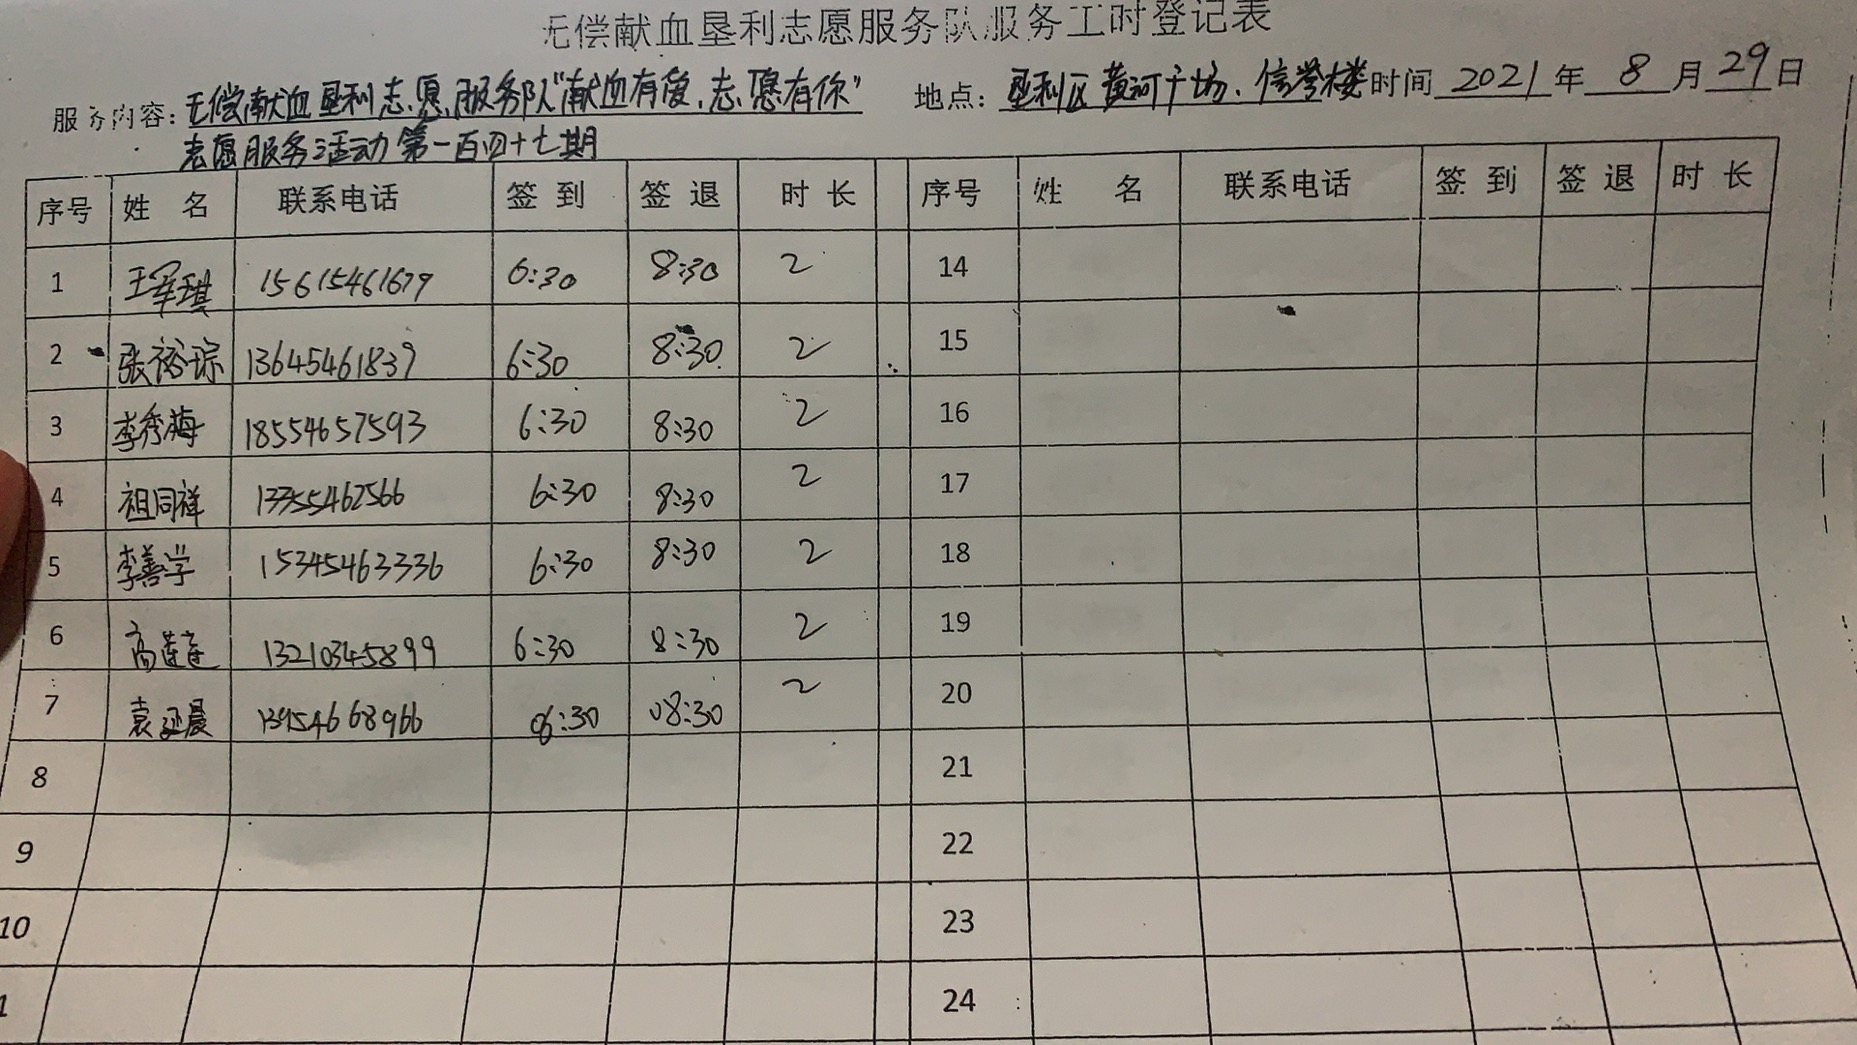 无偿献血垦利志愿服务队服务工时登记表
服务内容：无偿献血垦利志愿服务队"献血有爱，志愿有你" 地点：垦利区黄河广场、信誉楼 时间 2021 年 8 月 29 日
志愿服务活动第一百四十七期
序号 姓 名 联系电话 签 到 签 退 时 长 序号 姓 名 联系电话 签 到 签 退 时 长
1 王军琪 15615461679 6:30 8:30 2 14
2 张裕琮 13645461839 6:30 8:30 2 15
3 李秀梅 18554657593 6:30 8:30 2 16
4 祖同祥 13755462566 6:30 8:30 2 17
5 李善学 15345463336 6:30 8:30 2 18
6 高莲莲 13210345899 6:30 8:30 2 19
7 袁延晨 13954668966 06:30 08:30 2 20
8 21
9 22
10 23
1 24